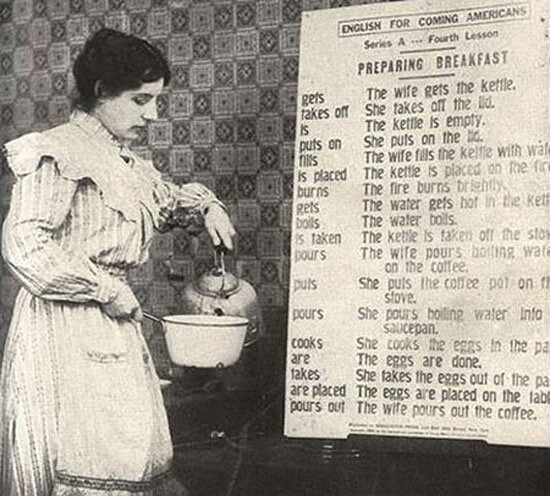 ENGLISH FOR COMING AMERICANS
Series A --- Fourth Lesson
PREPARING BREAKFAST
gets The wife gets the kettle.
takes off She takes off the lid.
is The kettle is empty.
puts on She puts on the lid.
fills The wife fills the kettle with
is placed The kettle is placed on the
burns The fire burns brightly.
gets The water gets hot in the
boils The water boils.
is taken The kettle is taken off the
pours The wife pours boiling
on the coffee.
puts She puts the coffee pot on
stove.
pours She pours boiling water into
saucepan.
cooks She cooks the eggs in the
are The eggs are done.
takes She takes the eggs out of the
are placed The eggs are placed on the
pours out The wife pours out the coffee.